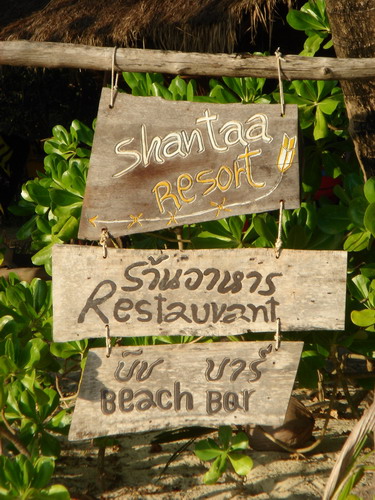 Shantaa
Resort
ร้านอาหาร
Restaurant
บีช บาร์
Beach Bar